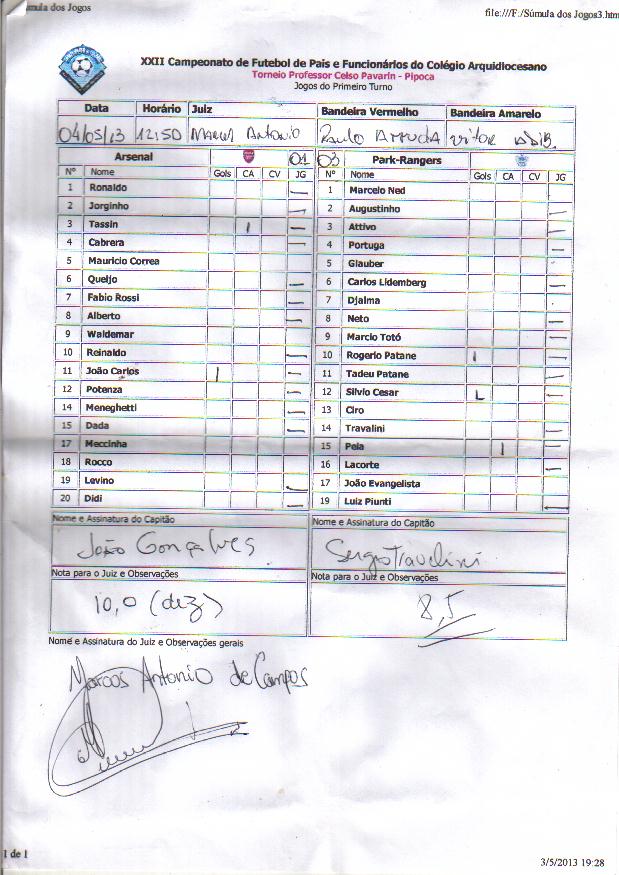 mula dos Jogos
file:///F:/Súmula dos Jogos3.htm
XXII Campeonato de Futebol de Pais e Funcionários do Colégio Arquidiocesano
Torneio Professor Celso Pavarin - Pipoca
Jogos do Primeiro Turno
Data Horário Juiz Bandeira Vermelho Bandeira Amarelo
04/05/13 12:50 Marcos Antonio Paulo Arruda Vitor
Arsenal 01 03 Park-Rangers
Nº Nome Gols CA CV JG Nº Nome Gols CA CV JG
1 Ronaldo — 1 Marcelo Ned
2 Jorginho — 2 Augustinho —
3 Tassin I — 3 Attivo —
4 Cabrera — 4 Portuga —
5 Mauricio Correa 5 Glauber
6 Queijo — 6 Carlos Lidemberg —
7 Fabio Rossi — 7 Djalma
8 Alberto — 8 Neto —
9 Waldemar 9 Marcio Totó —
10 Reinaldo — 10 Rogerio Patane I —
11 João Carlos I — 11 Tadeu Patane —
12 Potenza — 12 Silvio Cesar L —
14 Meneghetti — 13 Ciro
15 Dada — 14 Travalini —
17 Meccinha 15 Pela I —
18 Rocco 16 Lacorte —
19 Levino — 17 João Evangelista
20 Didi — 19 Luiz Piunti —
Nome e Assinatura do Capitão Nome e Assinatura do Capitão
João Gonçalves Sergio Travelini
Nota para o Juiz e Observações Nota para o Juiz e Observações
10,0 (dez) 8,5
Nome e Assinatura do Juiz e Observações gerais
Marcos Antonio de Campos
1 de 1
3/5/2013 19:28